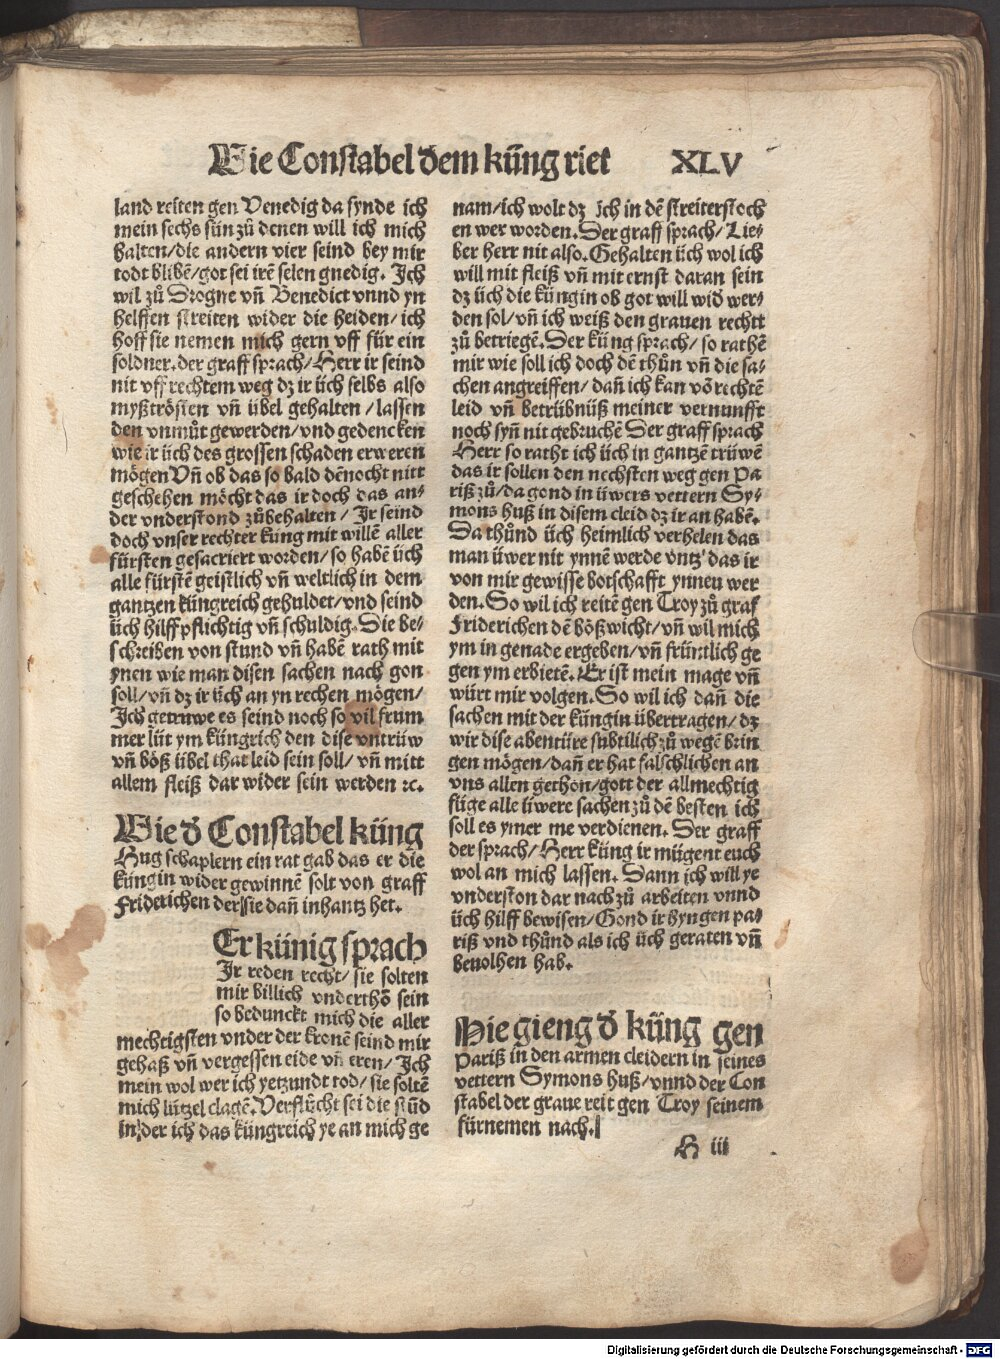 Wie Constabel dem küng riet XLV
land reiten gen Venedig da fynde ich
mein sechs sün zů denen will ich mich
halten/die andern vier seind bey mir
todt blibē/got sei irē selen gnedig. Ich
wil zů Drogne vñ Benedict vnnd yn
helffen streiten wider die heiden/ich
hoff sie nemen mich gern vff für ein
soldner.der graff sprach/Herr ir seind
nit vff rechtem weg dz ir üch selbs also
myßtrösten vñ übel gehalten/lassen
den vnmůt gewerden/vnd gedencken
wie ir üch des grossen schaden erweren
mögen Vñ ob das so bald dēnocht nitt
geschehen möcht das ir doch das an⸗
der vnderstond zůbehalten/Ir seind
doch vnser rechter küng mit willē aller
fürsten gesacriert worden/so habē üch
alle fürstē geistlich vñ weltlich in dem
gantzen küngreich gehuldet/vnd seind
üch hilff pflichtig vñ schuldig. Die be⸗
schreiben von stund vñ habē rath mit
ynen wie man disen sachen nach gon
soll/vñ dz ir üch an yn rechen mögen/
Ich getruwe es seind noch so vil frum
mer lüt ym küngrich den dise vntrüw
vñ böß übel that leid sein soll/vñ mitt
allem fleiß dar wider sein werden ꝛc.
Wie d̄ Constabel küng
Hug schaplern ein rat gab das er die
küngin wider gewinnē solt von graff
Friderichen der sie dañ inhantz het.
Er künig sprach
Ir reden recht/sie solten
mir billich vnderthō sein
so bedunckt mich die aller
mechtigsten vnder der kronē seind mir
gehaß vñ vergessen eide vñ eren/Ich
mein wol wer ich yetzundt tod/sie soltē
mich lützel clagē.Verflücht sei die stūd
in der ich das küngreich ye an mich ge
nam/ich wolt dz ich in dē streiterstoch
en wer worden.Der graff sprach/Lie⸗
ber herr nit also.Gehalten üch wol ich
will mit fleiß vñ mit ernst daran sein
dz üch die küngin ob got will wid̄ wer⸗
den sol/vñ ich weiß den grauen rechtt
zů betriegē.Der küng sprach/so rathē
mir wie soll ich doch dē thůn vñ die sa⸗
chen angreiffen/dañ ich kan vō rechtē
leid vñ betrübnüß meiner vernunfft
noch syñ nit gebruchē Der graff sprach
Herr so rath ich üch in gantzē trüwē
das ir sollen den nechsten weg gen Pa
riß zů/da gond in üwers vettern Sy⸗
mons huß in disem cleid dz ir an habē.
Da thůnd üch heimlich verhelen das
man üwer nit ynnē werde vntz das ir
von mir gewisse botschafft ynneu wer
den.So wil ich reitē gen Troy zů graf
Friderichen dē bößwicht/vñ wil mich
ym in genade ergeben/vñ früntlich ge
gen ym erbietē.Er ist mein mage vñ
würt mir volgen.So wil ich dañ die
sachen mit der küngin übertragen/dz
wir dise abentüre subtilich zů wegē brin
gen mögen/dañ er hat falschlichen an
vns allen gethon/gott der allmechtig
füge alle üwere sachen zů dē besten ich
soll es ymer me verdienen.Der graff
der sprach/Herr küng ir mügent euch
wol an mich lassen.Dann ich will ye
vnderston dar nach zů arbeiten vnnd
üch hilff bewisen/Gond ir hyngen pa⸗
riß vnd thůnd als ich üch geraten vñ
beuolhen hab.
Hie gieng d̄ küng gen
Pariß in den armen cleidern in seines
vettern Symons huß/vnnd der Con
stabel der graue reit gen Troy seinem
fürnemen nach.
H iii
Digitalisierung gefördert durch die Deutsche Forschungsgemeinschaft - DFG